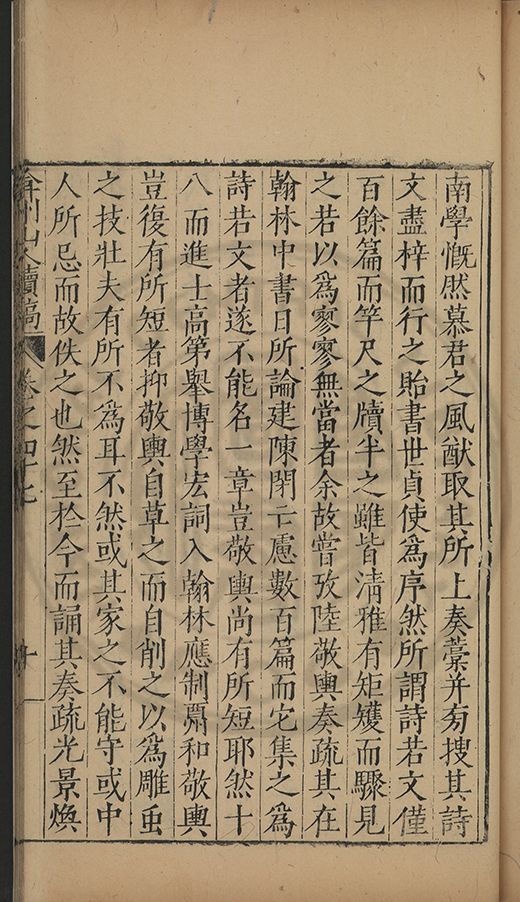 南學慨然慕君之風猷取其所上奏藁并旁搜其詩
文盡梓而行之貽書世貞使為序然所謂詩若文僅
百餘篇而竿尺之牘半之雖皆清雅有矩矱而驟見
之若以為寥寥無當者余故嘗攷陸敬輿奏疏其在
翰林中書日所論建陳閑亡慮數百篇而它集之為
詩若文者遂不能名一章豈敬輿尚有所短耶然十
八而進士高第舉博學宏詞入翰林應制賡和敬輿
豈復有所短者抑敬輿自草之而自削之以為雕虫
之技壯夫有所不為耳不然或其家之不能守或中
人所忌而故佚之也然至於今而誦其奏疏光景煥
弇州山人續稿 卷之四十七 十